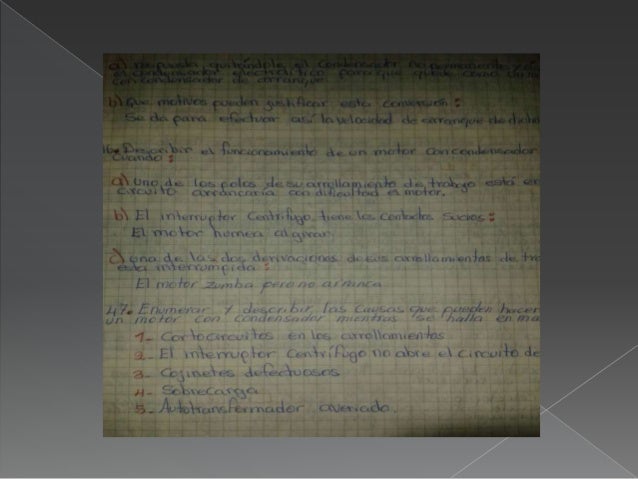 a) respuesta quitándole el condensador no permanente y
el condensador electrolítico para que quede como un m
con condensador de arranque
b) Que motivos pueden justificar esta conversión:
Se da para efectuar así la velocidad de arranque de dicho
46. Describir el funcionamiento de un motor con condensador
cuando:
a) Uno de los polos de su arrollamiento de trabajo está en
circuito arrancaría con dificultad el motor.
b) El interruptor Centrífugo tiene los Contactos Sucios:
El motor humea al girar.
c) una de las dos derivaciones de sus arrollamientos de tra
esta interrumpida:
El motor zumba pero no arranca
47. Enumerar y describir las causas que pueden hacer
un motor con condensador mientras se halla en ma
1- Cortocircuitos en los arrollamientos
2- El interruptor Centrífugo no abre el Circuito de
3- Cojinetes defectuosos
4- Sobrecarga
5- Autotransformador averiado.